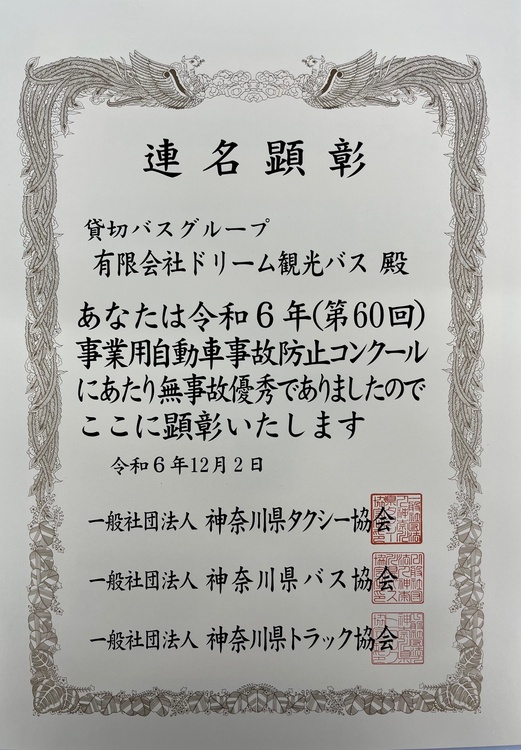 連名顕彰
貸切バスグループ
有限会社ドリーム観光バス 殿
あなたは令和6年(第60回)
事業用自動車事故防止コンクール
にあたり無事故優秀でありましたので
ここに顕彰いたします
令和6年12月2日
一般社団法人 神奈川県タクシー協会
一般社団法人 神奈川県バス協会
一般社団法人 神奈川県トラック協会